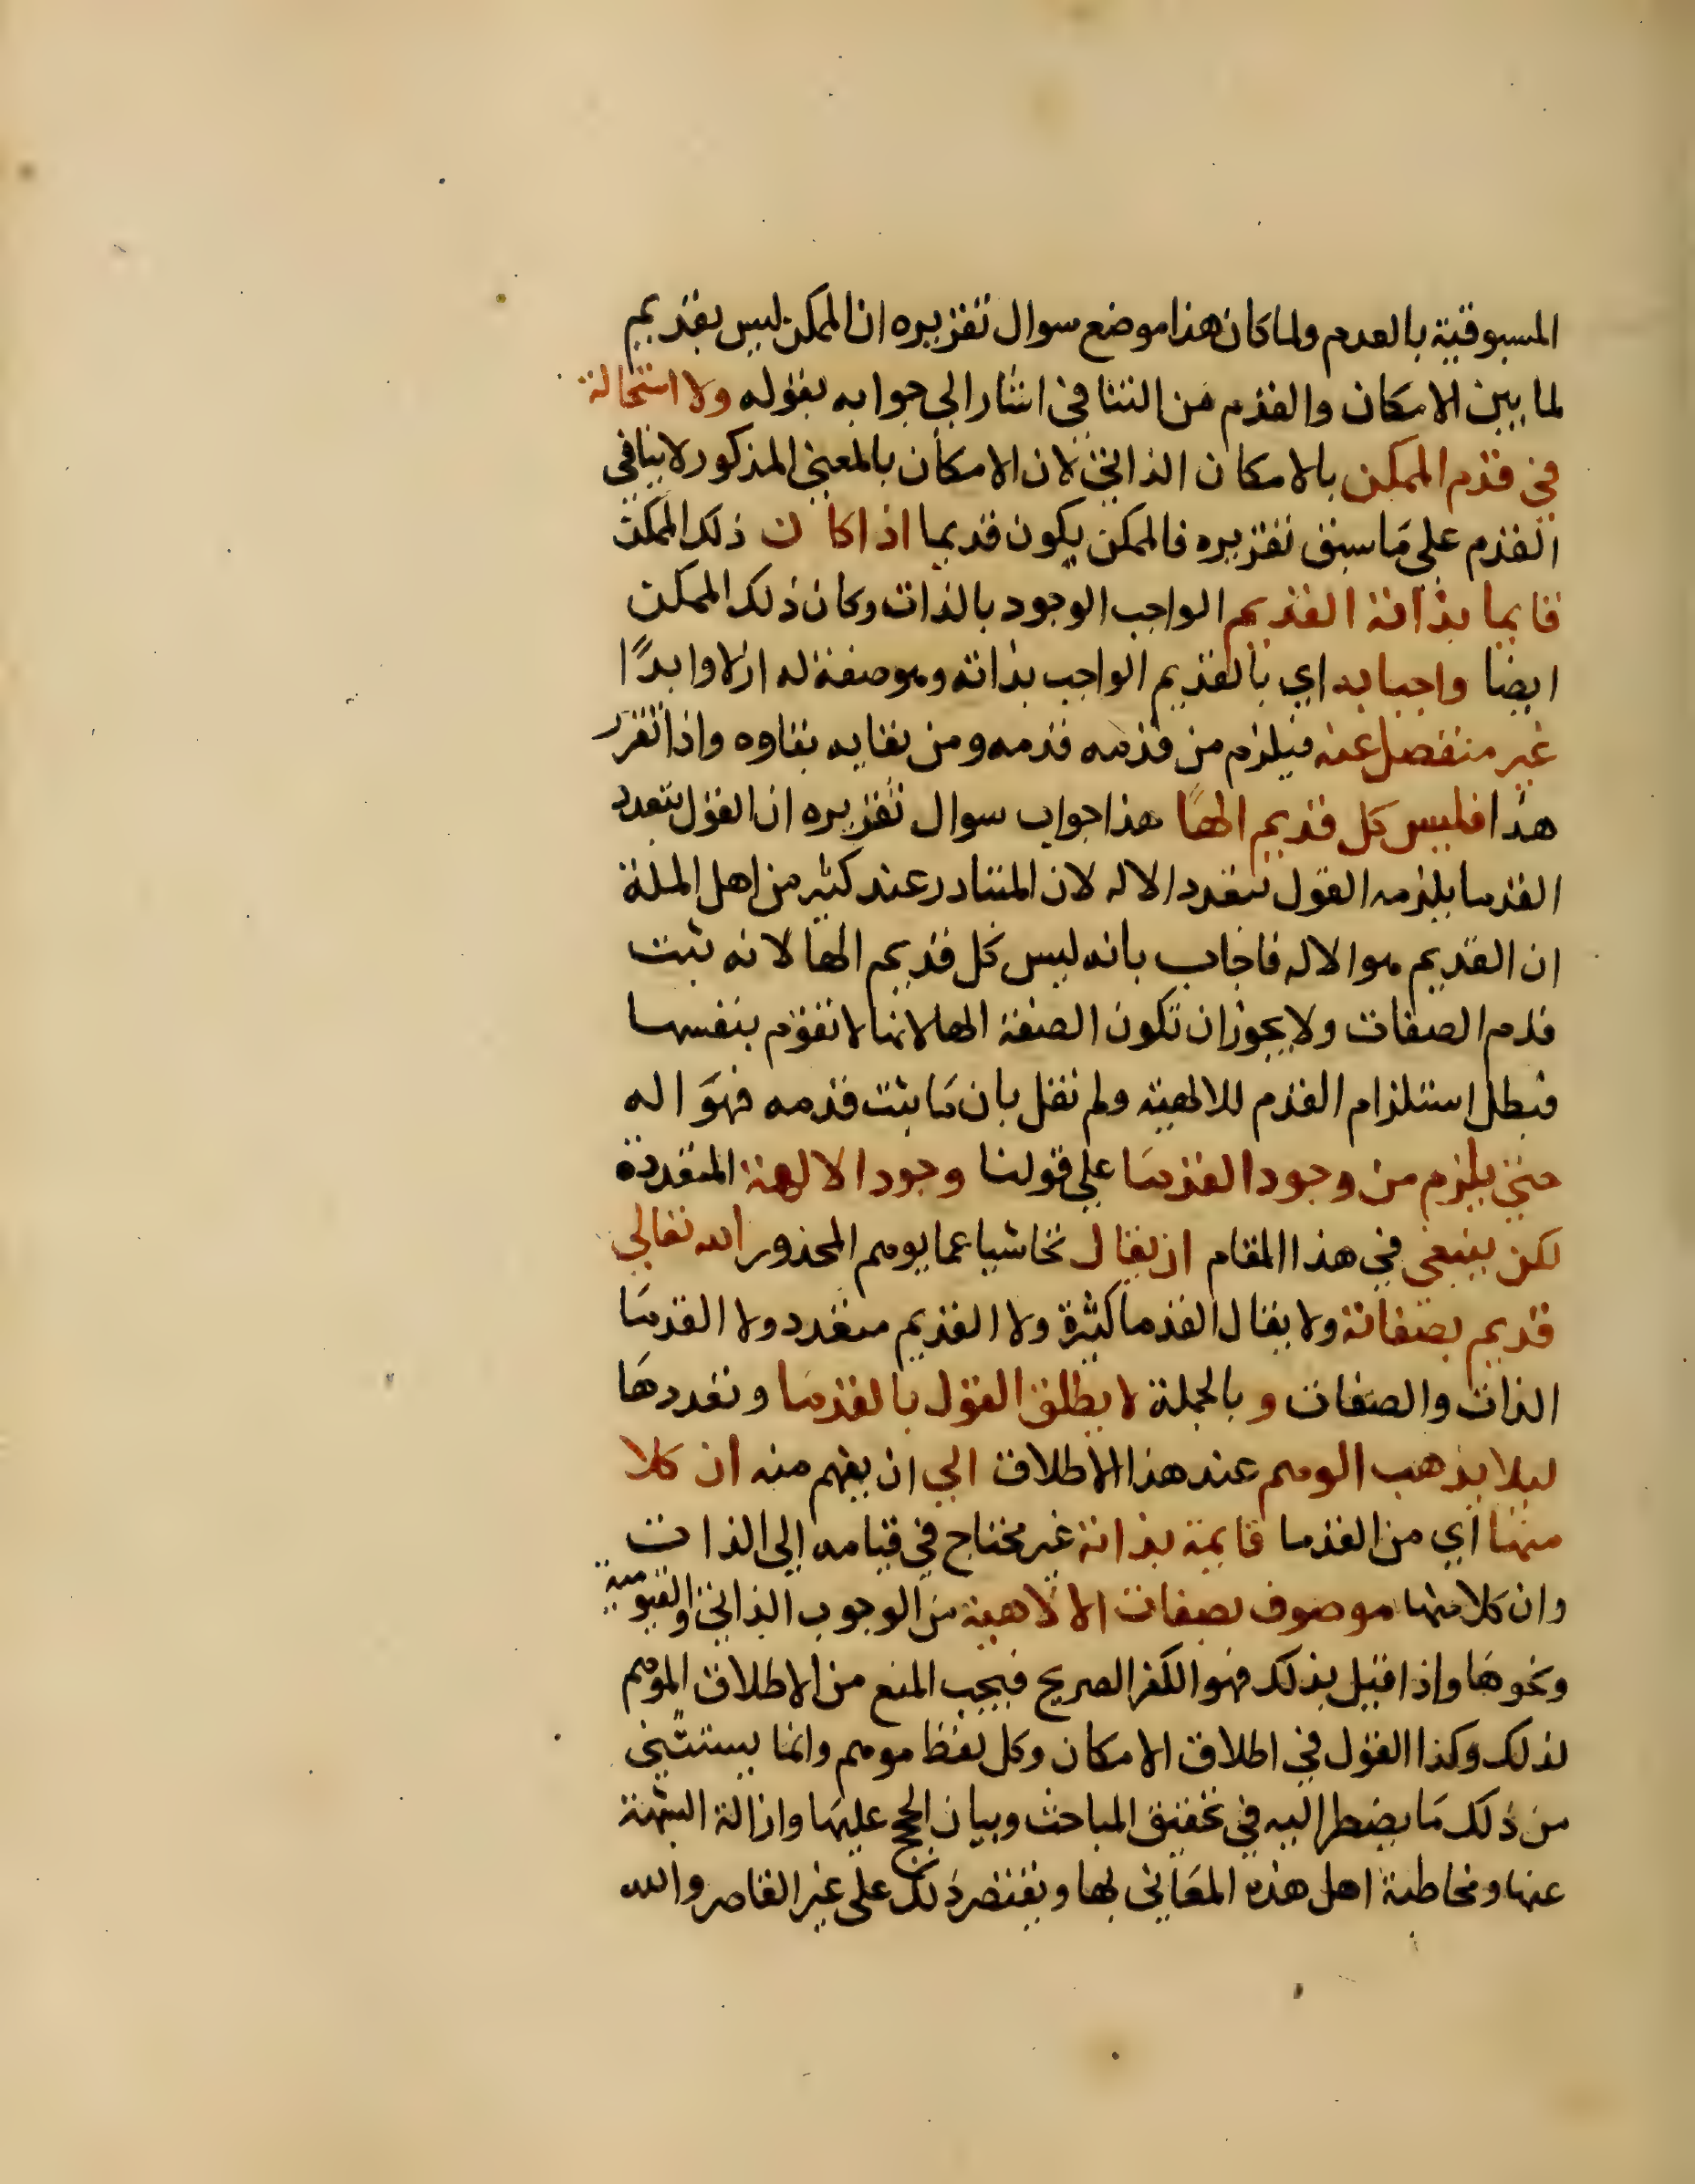 المسبوقية بالعدم ولما كان هذا موضع سوال تقريره ان الممكن ليس بقديم
لما بين الامكان والقدم من التنافي اشار الي جوابه بقوله ولا استحالة
في قدم الممكن بالامكان الذاتي لان الامكان بالمعني المذكور لا ينافي
القدم علي ما سبق تقريره فالممكن يكون قديما اذا كان ذلك الممكن
قايما بذاته القديم الواجب الوجود بالذات وكان ذلك الممكن
ايضا واجبا به اي بالقديم الواجب بذاته وهو صفة له ازلا وابدًا
غير منفصل عنه فيلزم من قدمه قدمه ومن بقايه بقاوه واذا تقرر
هذا فليس كل قديم الهًا هذا جواب سوال تقريره ان القول بتعدد
القدما يلزمه القول بتعدد الاله لان المتبادر عند كثير من اهل الملة
ان القديم هو الاله فاجاب بانه ليس كل قديم الها لانه ثبت
قدم الصفات ولا يجوز ان تكون الصفة الها لانها لا تقوم بنفسها
فبطل استلزام القدم للالهية ولم نقل بان ما ثبت قدمه فهو اله
حتي يلزم من وجود القدما علي قولنا وجود الالهة المتعددة
لكن ينبغي في هذا المقام ان يقال تحاشيا عما يوهم المحذور الله تعالي
قديم بصفاته ولا يقال القدما كثيرة ولا القديم متعدد ولا القدما
الذات والصفات و بالجملة لا يطلق القول بالقدما وتعددها
ليلا يذهب الوهم عند هذا الاطلاق الي ان يفهم منه ان كلا
منها اي من القدما قايمة بذاته غير محتاج في قيامه الي الذات
وان كلا منها موصوف بصفات الالاهية من الوجوب الذاتي والقيومية
ونحوها واذا قيل بذلك فهو الكفر الصريح فيجب المنع من الاطلاق الموهم
لذلك وكذا القول في اطلاق الامكان وكل لفظ موهم وانما يستثني
من ذلك ما يضطر اليه في تحقيق المباحث وبيان الحجج عليها وازالة الشبهة
عنها ومخاطبة اهل هذه المعاني بها ويقتصر ذلك علي غير القاصر والله